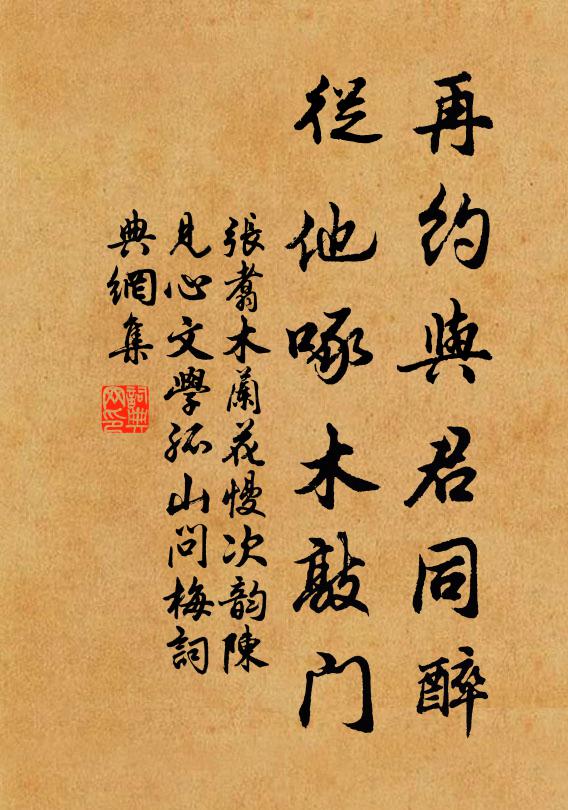 再約與君同醉
從他啄木敲門
張翥木蘭花慢次韵陳
見心文學孤山問梅詞
典網集
詞典網印